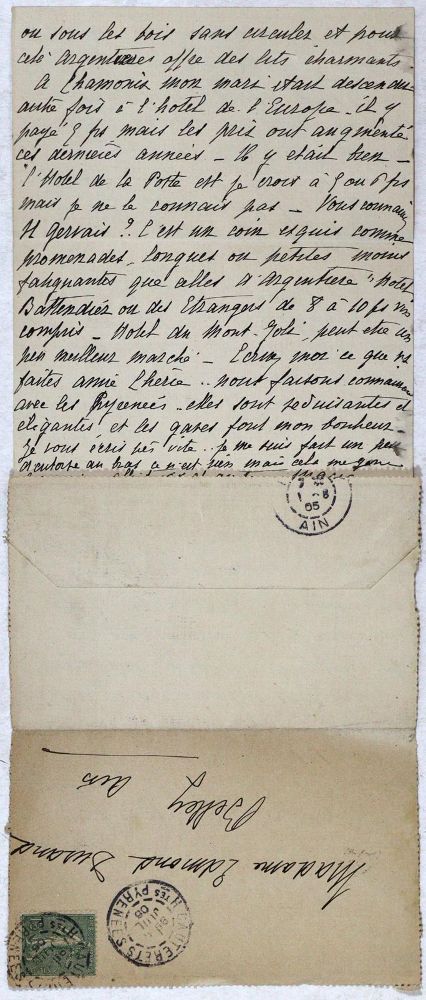 ou sous les bois sans circuler et pour
cela Argentières offre des lits charmants
A Chamonix mon mari etait descendu
autre fois à l'hotel de l'Europe. il y
paye 9 frs mais les prix ont augmenté
ces dernieres années – Il y etait bien –
l'Hotel de la Poste est je crois à 5 ou 6 frs
mais je ne le connais pas – Vous connaissez
St Gervais ? C'est un coin exquis comme
promenades, longues ou petites moins
fatiguantes que celles d'Argentière "Hotel
Battendier ou des Etrangers de 8 à 10 frs vin
compris – Hotel du Mont Joli, peut etre un
peu meilleur marché – Ecrivez moi ce que vs
faites amie Chérie .. nous faisons connaissance
avec les Pyrenées .. elles sont seduisantes et
élégantes et les gaves font mon bonheur –
Je vous écris très vite .. je me suis fait un peu
d'entorse au bras ce n'est rien mais cela me gene
05
AIN
Madame Edmond Durand
Belley
Ain
CAUTERETS
JUIL
HTES PYRENEES